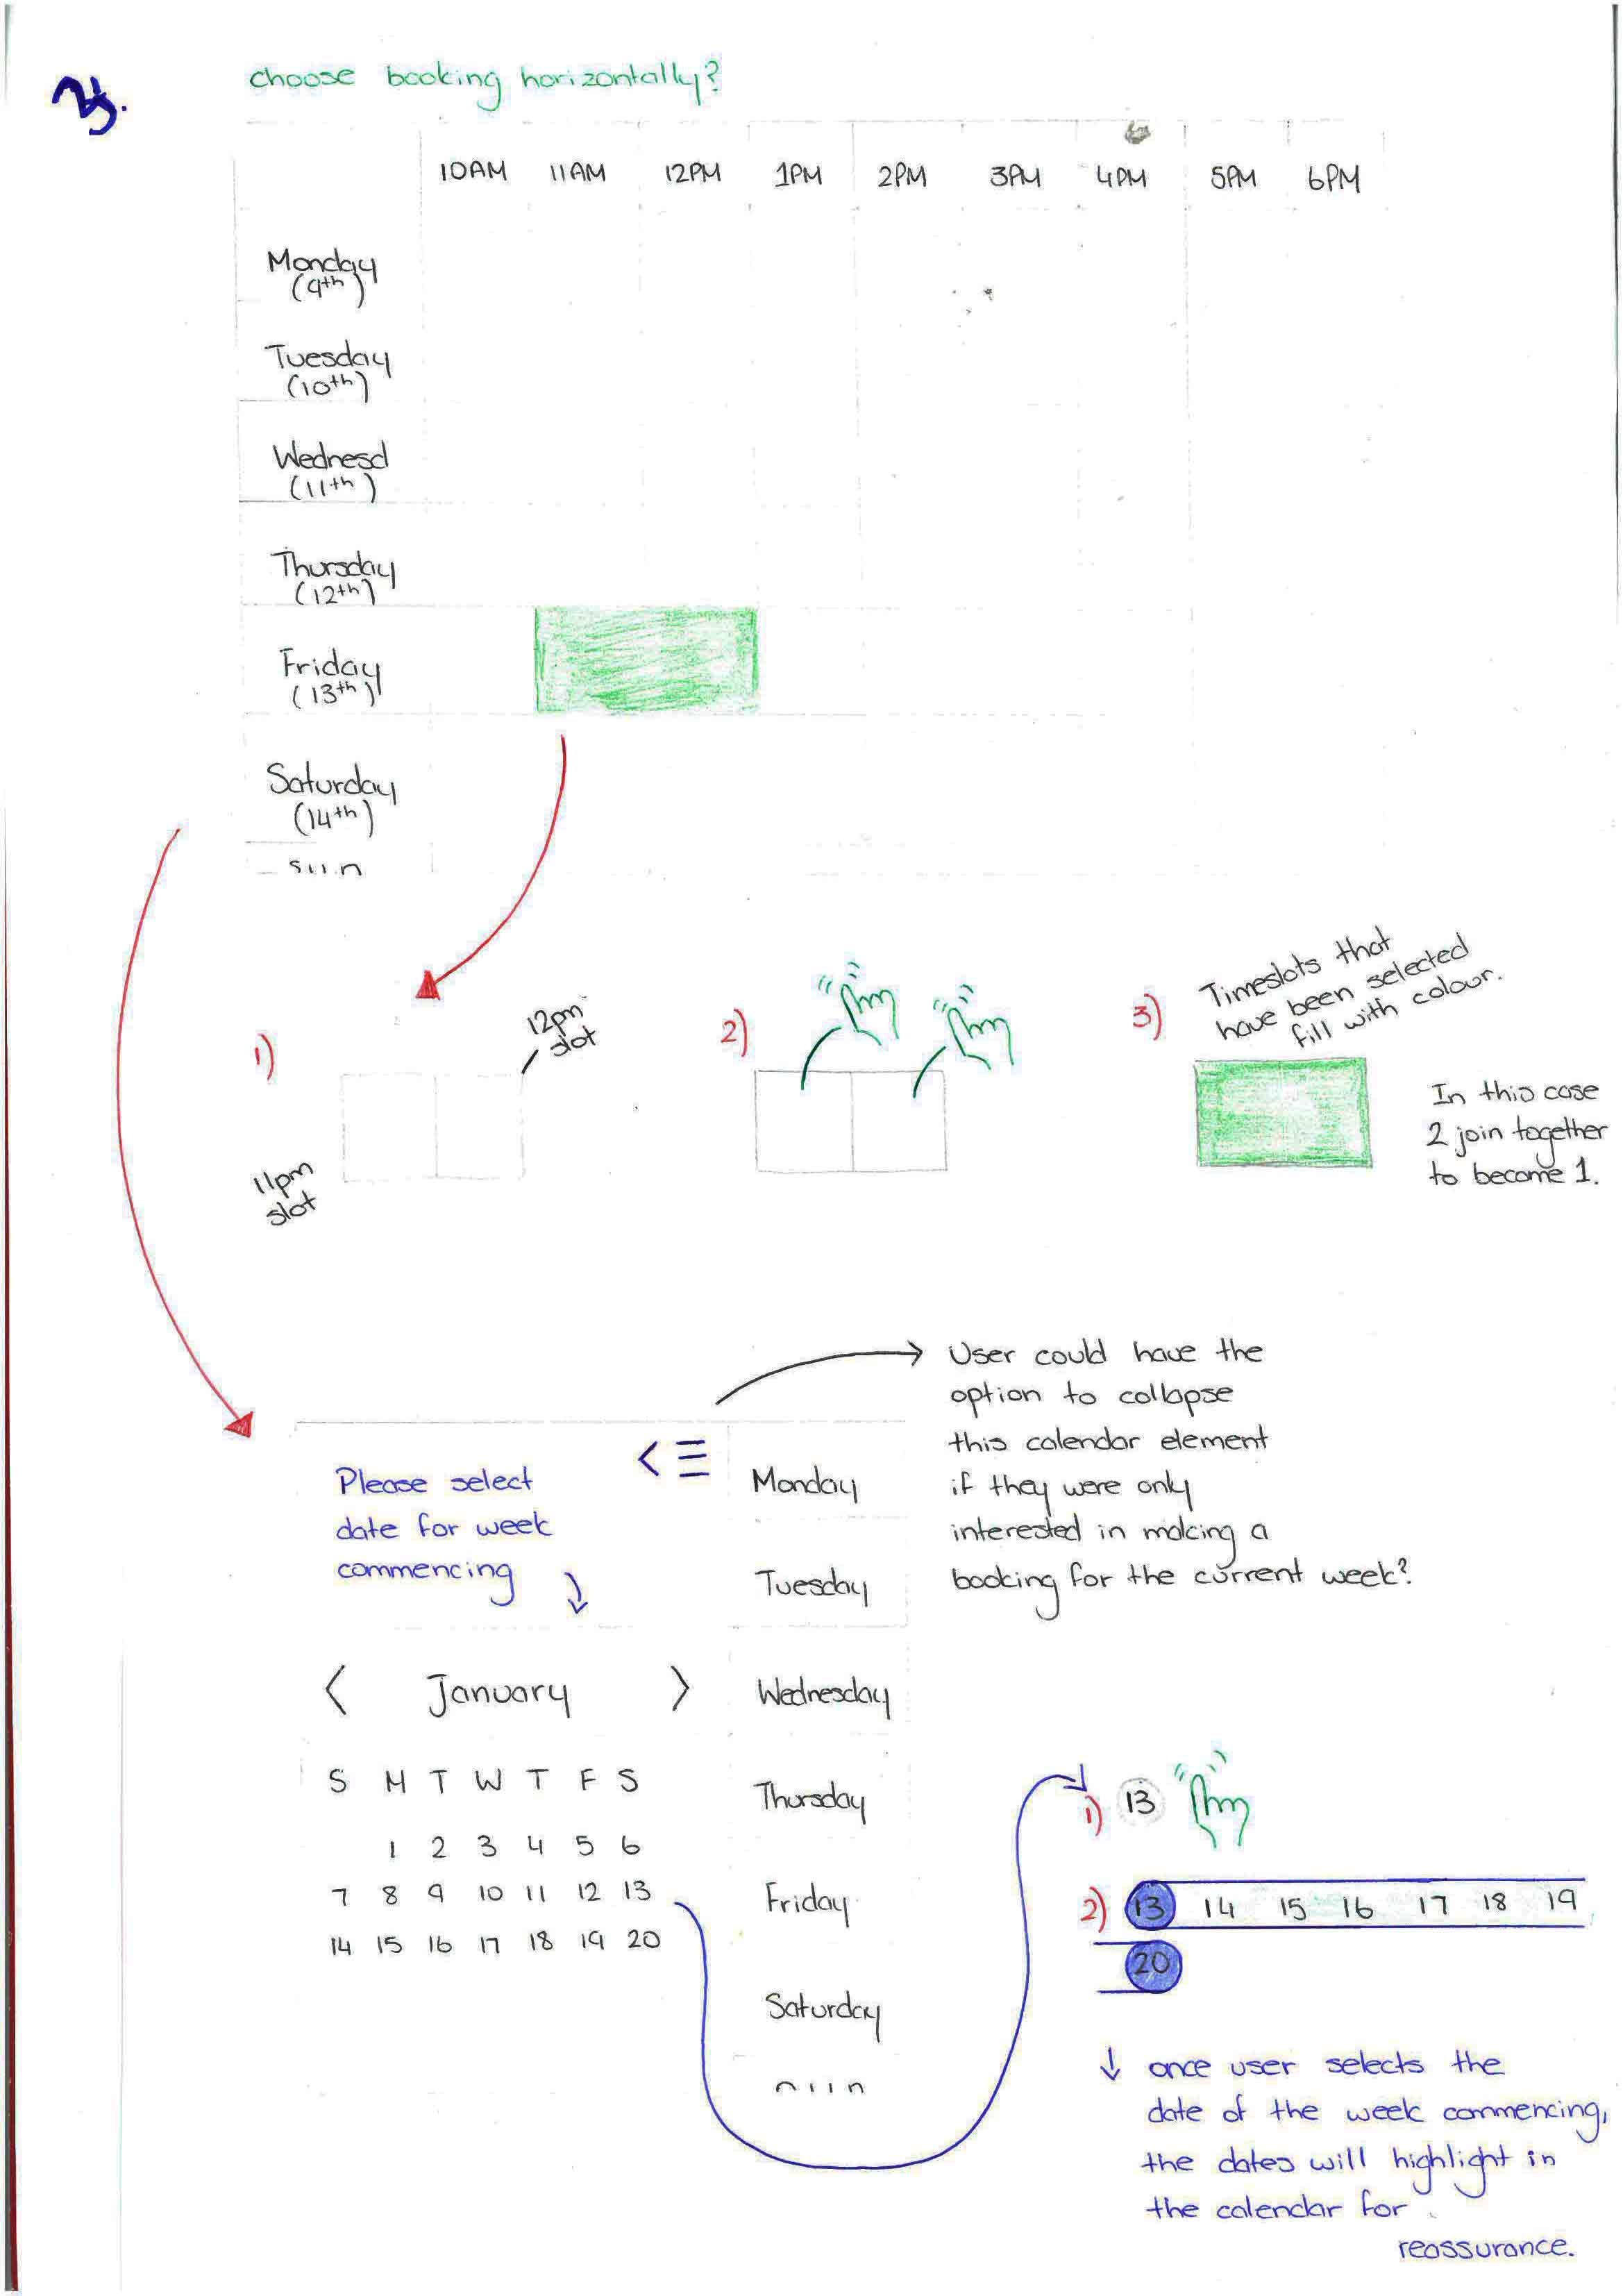 choose booking horizontally?
10AM 11AM 12PM 1PM 2PM 3PM 4PM 5PM 6PM
Monday
(9th)
Tuesday
(10th)
Wednesd
(11th)
Thursday
(12th)
Friday
(13th)
Saturday
(14th)
1)
11pm
slot
12pm
slot
2)
3)
Timeslots that
have been selected
fill with colour.
In this case
2 join together
to become 1.
User could have the
option to collapse
this calendar element
if they were only
interested in making a
booking for the current week?
Please select
date for week
commencing
< January >
S M T W T F S
1 2 3 4 5 6
7 8 9 10 11 12 13
14 15 16 17 18 19 20
Monday
Tuesday
Wednesday
Thursday
Friday
Saturday
1) 13
2) 13 14 15 16 17 18 19
20
↓ once user selects the
date of the week commencing,
the dates will highlight in
the calendar for
reassurance.